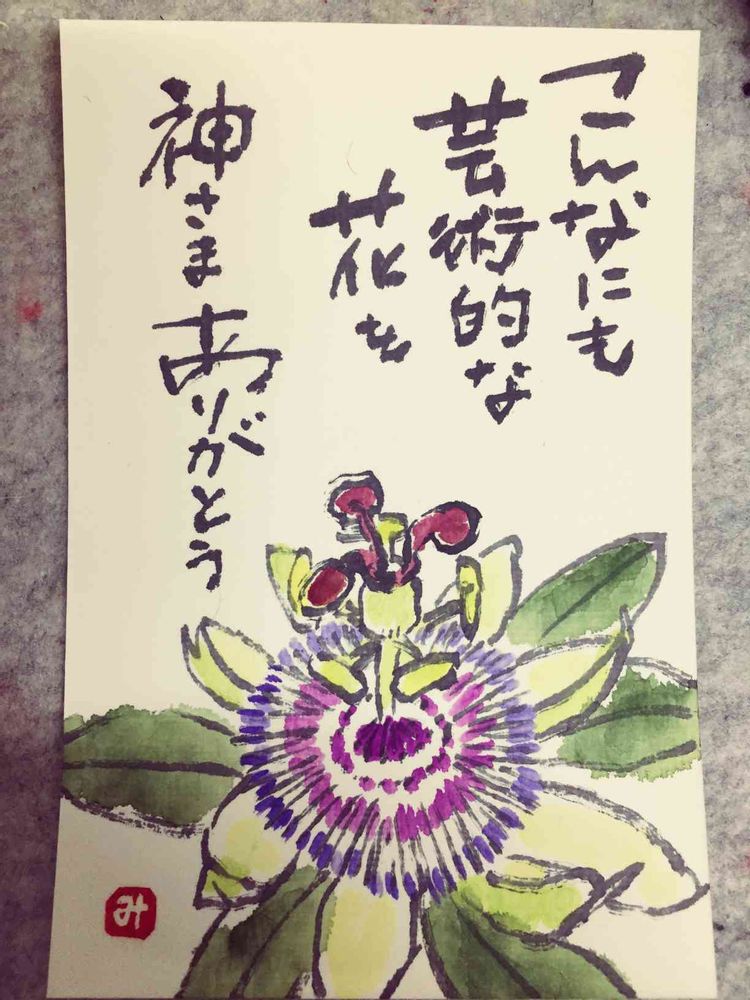 こんなにも
芸術的な
花を
神さまありがとう
み